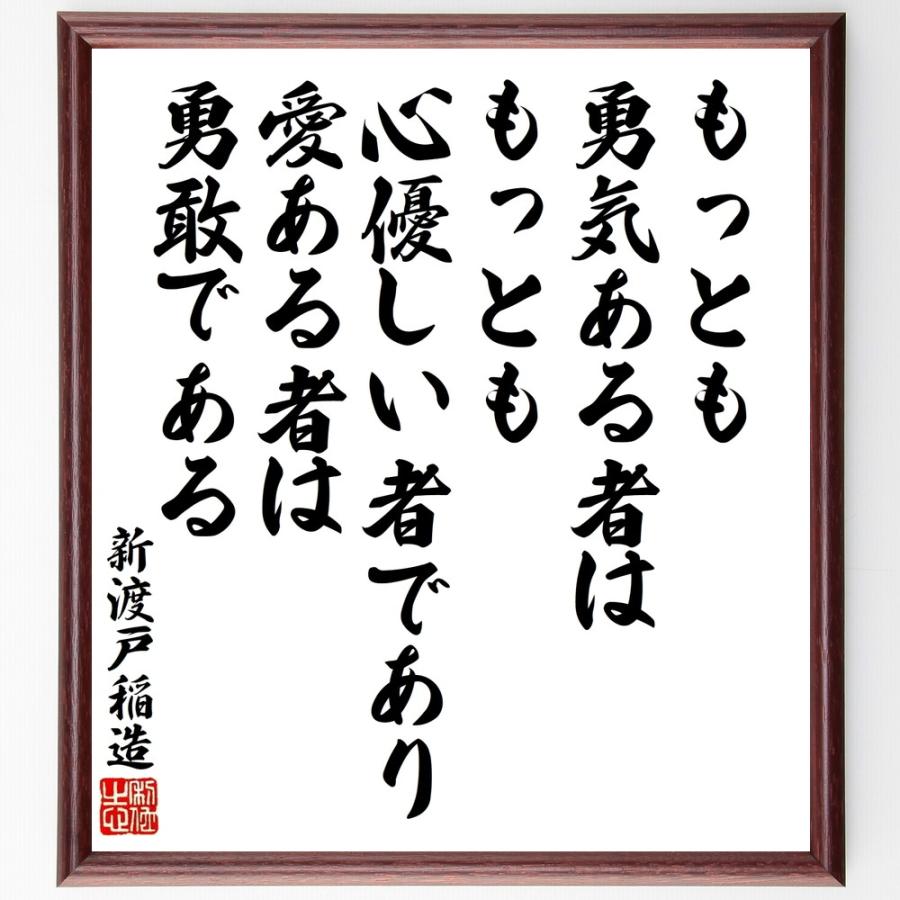 もっとも
勇気ある者は
もっとも
心優しい者であり
愛ある者は
勇敢である
新渡戸稲造